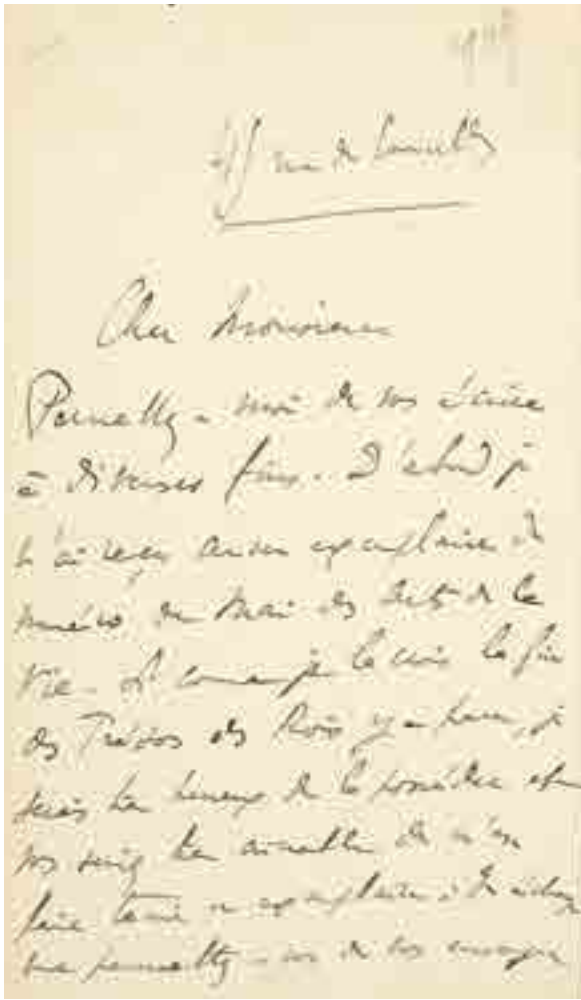 45 rue de Courcelles
Cher Monsieur
Permettez-moi de vous écrire
à diverses fins. D'abord je
n'ai reçu aucun exemplaire du
numéro de Mai des Arts de la
Vie. Et comme je le crois la fin
des Trésors des Rois y a paru, je
serais très heureux de la posséder et
vous seriez très aimable de m'en
faire tenir un exemplaire
me permettez-vous de vous envoyer